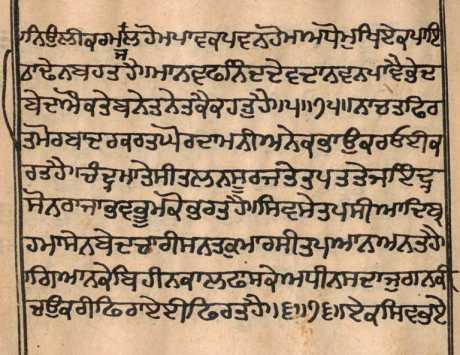 ਨਿਉਲੀਕਰਮਜਲਹੋਮਪਾਵਕਪਵਨਹੋਮਅਧੋਮੁਖਿਏਕਪਾਇ
ਠਾਢੇਨਬਹਤਹੈ॥ਮਾਨਵਫਨਿੰਦਦੇਵਦਾਨਵਨਪਾਵੈਭੇਦ
ਬੇਦਔਕਤੇਬਨੇਤਨੇਤਕੈਕਹਤੁਹੈ॥੫॥੭੫॥ਨਾਚਤਫਿਰ
ਤਮੋਰਬਾਦਰਕਰਤਘੋਰਦਾਮਨੀਅਨੇਕਭਾਉਕਰਓਈਕ
ਰਤਹੈ॥ਚੰਦ੍ਰਮਾਤੇਸੀਤਲਨਸੂਰਜਤੇਤਪਤਤੇਜਇੰਦ੍ਰ
ਸੋਨਰਾਜਾਭਵਭੂਮਕੋਭਰਤਹੈ॥ਸਿਵਸੇਤਪਸੀਆਦਿਬ੍ਰ
ਹਮਾਸੇਨਬੇਦਚਾਰੀਸਨਤਕੁਮਾਰਸੀਤਪਆਨਅਨਤਹੈ
॥ਗਿਆਨਕੇਬਿਹੀਨਕਾਲਫਾਸਕੇਅਧੀਨਸਦਾਜੁਗਨਕੀ
ਚਉਕਰੀਫਿਰਾਏਈਫਿਰਤਹੈ॥੬॥੭੬॥ਏਕਸਿਵਭਏ